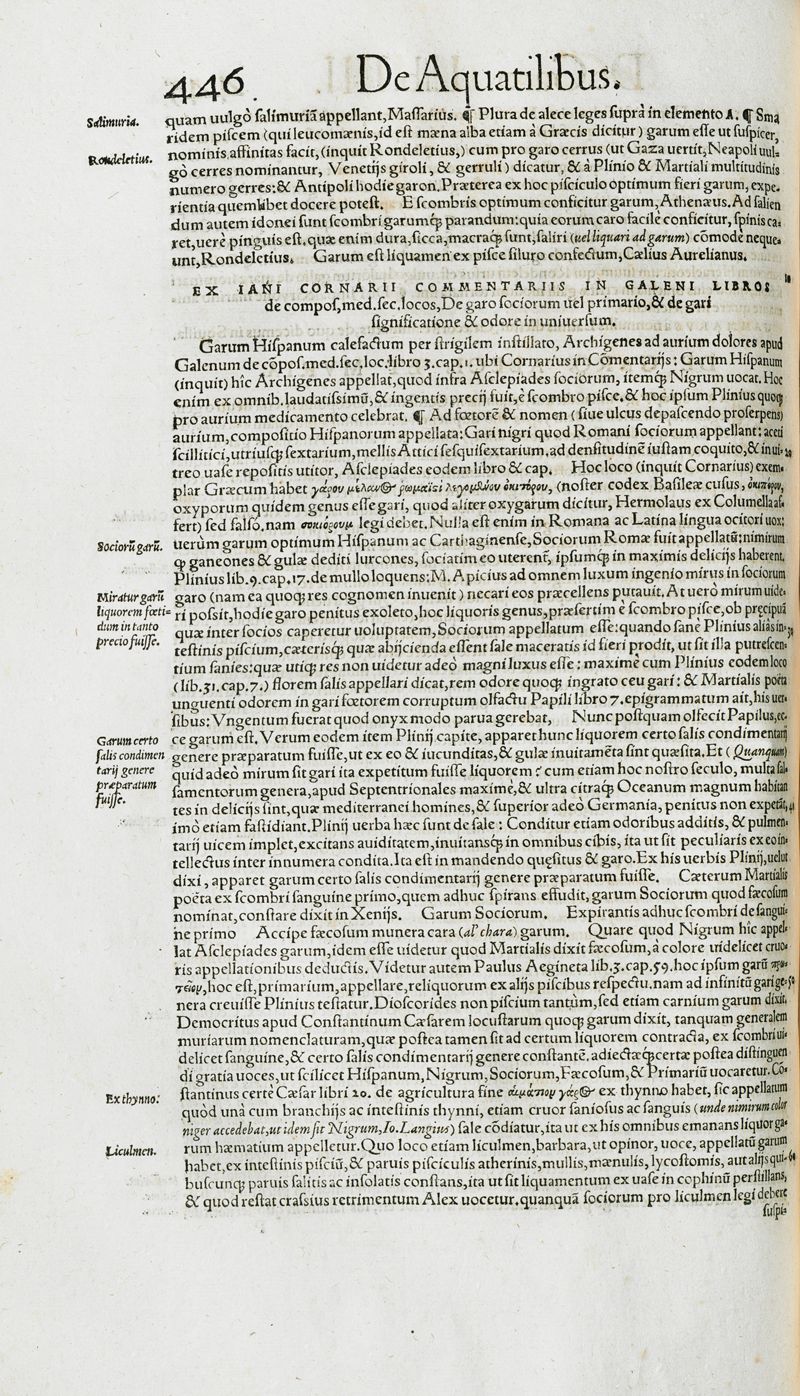 446. De Aquatilibus.
Salimuria.
quam uulgò ſalimuriã appellant, Maſſarius. ¶ Plura de alece leges ſuprà in elemento A. ¶ Sma
ridem piſcem (qui leucomænis, id eſt mæna alba etiam à Græcis dicitur) garum eſſe ut ſuſpicer,
Rondeletius.
nominis affinitas facit, (inquit Rondeletius,) cum pro garo cerrus (ut Gaza uertit, Neapoli uul-
gò cerres nominantur, Venetijs giroli, & gerruli) dicatur, & à Plinio & Martiali multitudinis
numero gerres: & Antipoli hodie garon. Præterea ex hoc piſciculo optimum fieri garum, expe-
rientia quemlibet docere poteſt. E ſcombris optimum conficitur garum, Athenæus. Ad ſalien
dum autem idonei ſunt ſcombri garumq́; parandum: quia eorum caro facilè conficitur, ſpinis ca-
ret, uerè pinguis eſt. quæ enim dura, ſicca, macraq́; ſunt, ſaliri (uel liquari ad garum) cõmodè neque-
unt, Rondeletius. Garum eſt liquamen ex piſce ſiluro confectum, Cælius Aurelianus.
EX IANI CORNARII COMMENTARIIS IN GALENI LIBROS
10
de compoſ, med. ſec. locos, De garo ſociorum uel primario, & de gari
ſignificatione & odore in uniuerſum.
Garum Hiſpanum calefactum per ſtrigilem inſtillato, Archigenes ad aurium dolores apud
Galenum de cõpoſ. med. ſec. loc. libro 3. cap. 1. ubi Cornarius in Cõmentarijs: Garum Hiſpanum
(inquit) hîc Archigenes appellat, quod infra Aſclepiades ſociorum, itemq́; Nigrum uocat. Hoc
enim ex omnib. laudatiſsimũ, & ingentis precij fuit, è ſcombro piſce. & hoc ipſum Plinius quoq;
pro aurium medicamento celebrat. ¶ Ad fœtorẽ & nomen (ſiue ulcus depaſcendo proſerpens)
aurium, compoſitio Hiſpanorum appellata: Gari nigri quod Romani ſociorum appellant: aceti
ſcillitici, utriuſq; ſextarium, mellis Attici ſeſquiſextarium, ad denſitudinẽ iuſtam coquito, & in ui- 20
treo uaſe repoſitis utitor, Aſclepiades eodem libro & cap. Hoc loco (inquit Cornarius) exem-
plar Græcum habet γάρου μέλανος ῥωμαϊστὶ λεγομένου ὀκιτόρου, (noſter codex Baſileæ cuſus, ὀκιπόρου,
oxyporum quidem genus eſſe gari, quod aliter oxygarum dicitur, Hermolaus ex Columella aſ-
fert) ſed falſò. nam σοκιόρουμ legi debet. Nulla eſt enim in Romana ac Latina lingua ocitori uox:
Sociorũ garũ.
uerùm garum optimum Hiſpanum ac Carthaginenſe, Sociorum Romæ fuit appellatũ: nimirum
q; ganeones & gulæ dediti lurcones, ſociatim eo uterent, ipſumq́; in maximis delicijs haberent.
Plinius lib. 9. cap. 17. de mullo loquens: M. Apicius ad omnem luxum ingenio mirus in ſociorum
Miratur garũ liquorem fœti-dum in tanto precio fuiſſe.
garo (nam ea quoq; res cognomen inuenit) necari eos præcellens putauit. At uerò mirum uide-
ri poſsit, hodie garo penitus exoleto, hoc liquoris genus, præſertim è ſcombro piſce, ob præcipuã
quæ inter ſocios caperetur uoluptatem, Sociorum appellatum eſſe: quando ſanè Plinius aliàs in- 30
teſtinis piſcium, cæterisq́; quæ abijcienda eſſent ſale maceratis id fieri prodit, ut ſit illa putreſcen-
tium ſanies: quæ utiq; res non uidetur adeò magni luxus eſſe: maximè cum Plinius eodem loco
(lib. 31. cap. 7.) florem ſalis appellari dicat, rem odore quoq; ingrato ceu gari: & Martialis poëta
unguenti odorem in gari fœtorem corruptum olfactu Papili libro 7. epigrammatum ait, his uer-
ſibus: Vnguentum fuerat quod onyx modo parua gerebat, Nunc poſtquam olfecit Papilus, ec-
Garum certo ſalis condimen tarij genere præparatum fuiſſe.
ce garum eſt. Verum eodem item Plinij capite, apparet hunc liquorem certo ſalis condimentarij
genere præparatum fuiſſe, ut ex eo & iucunditas, & gulæ inuitamẽta ſint quæſita. Et (Quanquam)
quid adeò mirum ſit gari ita expetitum fuiſſe liquorem? cum etiam hoc noſtro ſeculo, multa ſal-
ſamentorum genera, apud Septentrionales maximè, & ultra citraq́; Oceanum magnum habitan
tes in delicijs ſint, quæ mediterranei homines, & ſuperior adeò Germania, penitus non expetãt, 40
imò etiam faſtidiant. Plinij uerba hæc ſunt de ſale: Conditur etiam odoribus additis, & pulmen-
tarij uicem implet, excitans auiditatem, inuitansq́; in omnibus cibis, ita ut ſit peculiaris ex eo in-
tellectus inter innumera condita. Ita eſt in mandendo quęſitus & garo. Ex his uerbis Plinij, uelut
dixi, apparet garum certo ſalis condimentarij genere præparatum fuiſſe. Cæterum Martialis
poëta ex ſcombri ſanguine primo, quem adhuc ſpirans effudit, garum Sociorum quod fæcoſum
nominat, conſtare dixit in Xenijs. Garum Sociorum. Expirantis adhuc ſcombri de ſangui-
ne primo Accipe fæcoſum munera cara (al' chara) garum. Quare quod Nigrum hîc appel-
lat Aſclepiades garum, idem eſſe uidetur quod Martialis dixit fæcoſum, à colore uidelicet cruo-
ris appellationibus deductis. Videtur autem Paulus Aegineta lib. 3. cap. 59. hoc ipſum garũ πρω-
τεῖον, hoc eſt, primarium, appellare, reliquorum ex alijs piſcibus reſpectu. nam ad infinitũ gari ge- 50
nera creuiſſe Plinius teſtatur. Dioſcorides non piſcium tantùm, ſed etiam carnium garum dixit.
Democritus apud Conſtantinum Cæſarem locuſtarum quoq; garum dixit, tanquam generalem
muriarum nomenclaturam, quæ poſtea tamen ſit ad certum liquorem contracta, ex ſcombri ui-
delicet ſanguine, & certo ſalis condimentarij genere conſtantẽ. adiectæq́; certæ poſtea diſtinguen
di gratia uoces, ut ſcilicet Hiſpanum, Nigrum, Sociorum, Fæcoſum, & Primariũ uocaretur. Cõ-
Ex thynno.
ſtantinus certè Cæſar libri 20. de agricultura fine αἱμάτιον γάρος ex thynno habet, ſic appellatum
quòd unà cum branchijs ac inteſtinis thynni, etiam cruor ſanioſus ac ſanguis (unde nimirum color
niger accedebat, ut idem ſit Nigrum, Io. Langius) ſale cõdiatur, ita ut ex his omnibus emanans liquor ga-
Liculmen.
rum hæmatium appelletur. Quo loco etiam liculmen, barbara, ut opinor, uoce, appellatũ garum
habet, ex inteſtinis piſciũ, & paruis piſciculis atherinis, mullis, mænulis, lycoſtomis, aut alijs qui- 60
buſcunq; paruis ſalitis ac inſolatis conſtans, ita ut ſit liquamentum ex uaſe in cophinũ perſtillans,
& quod reſtat craſsius retrimentum Alex uocetur. quanquã ſociorum pro liculmen legi debere
ſuſpi-